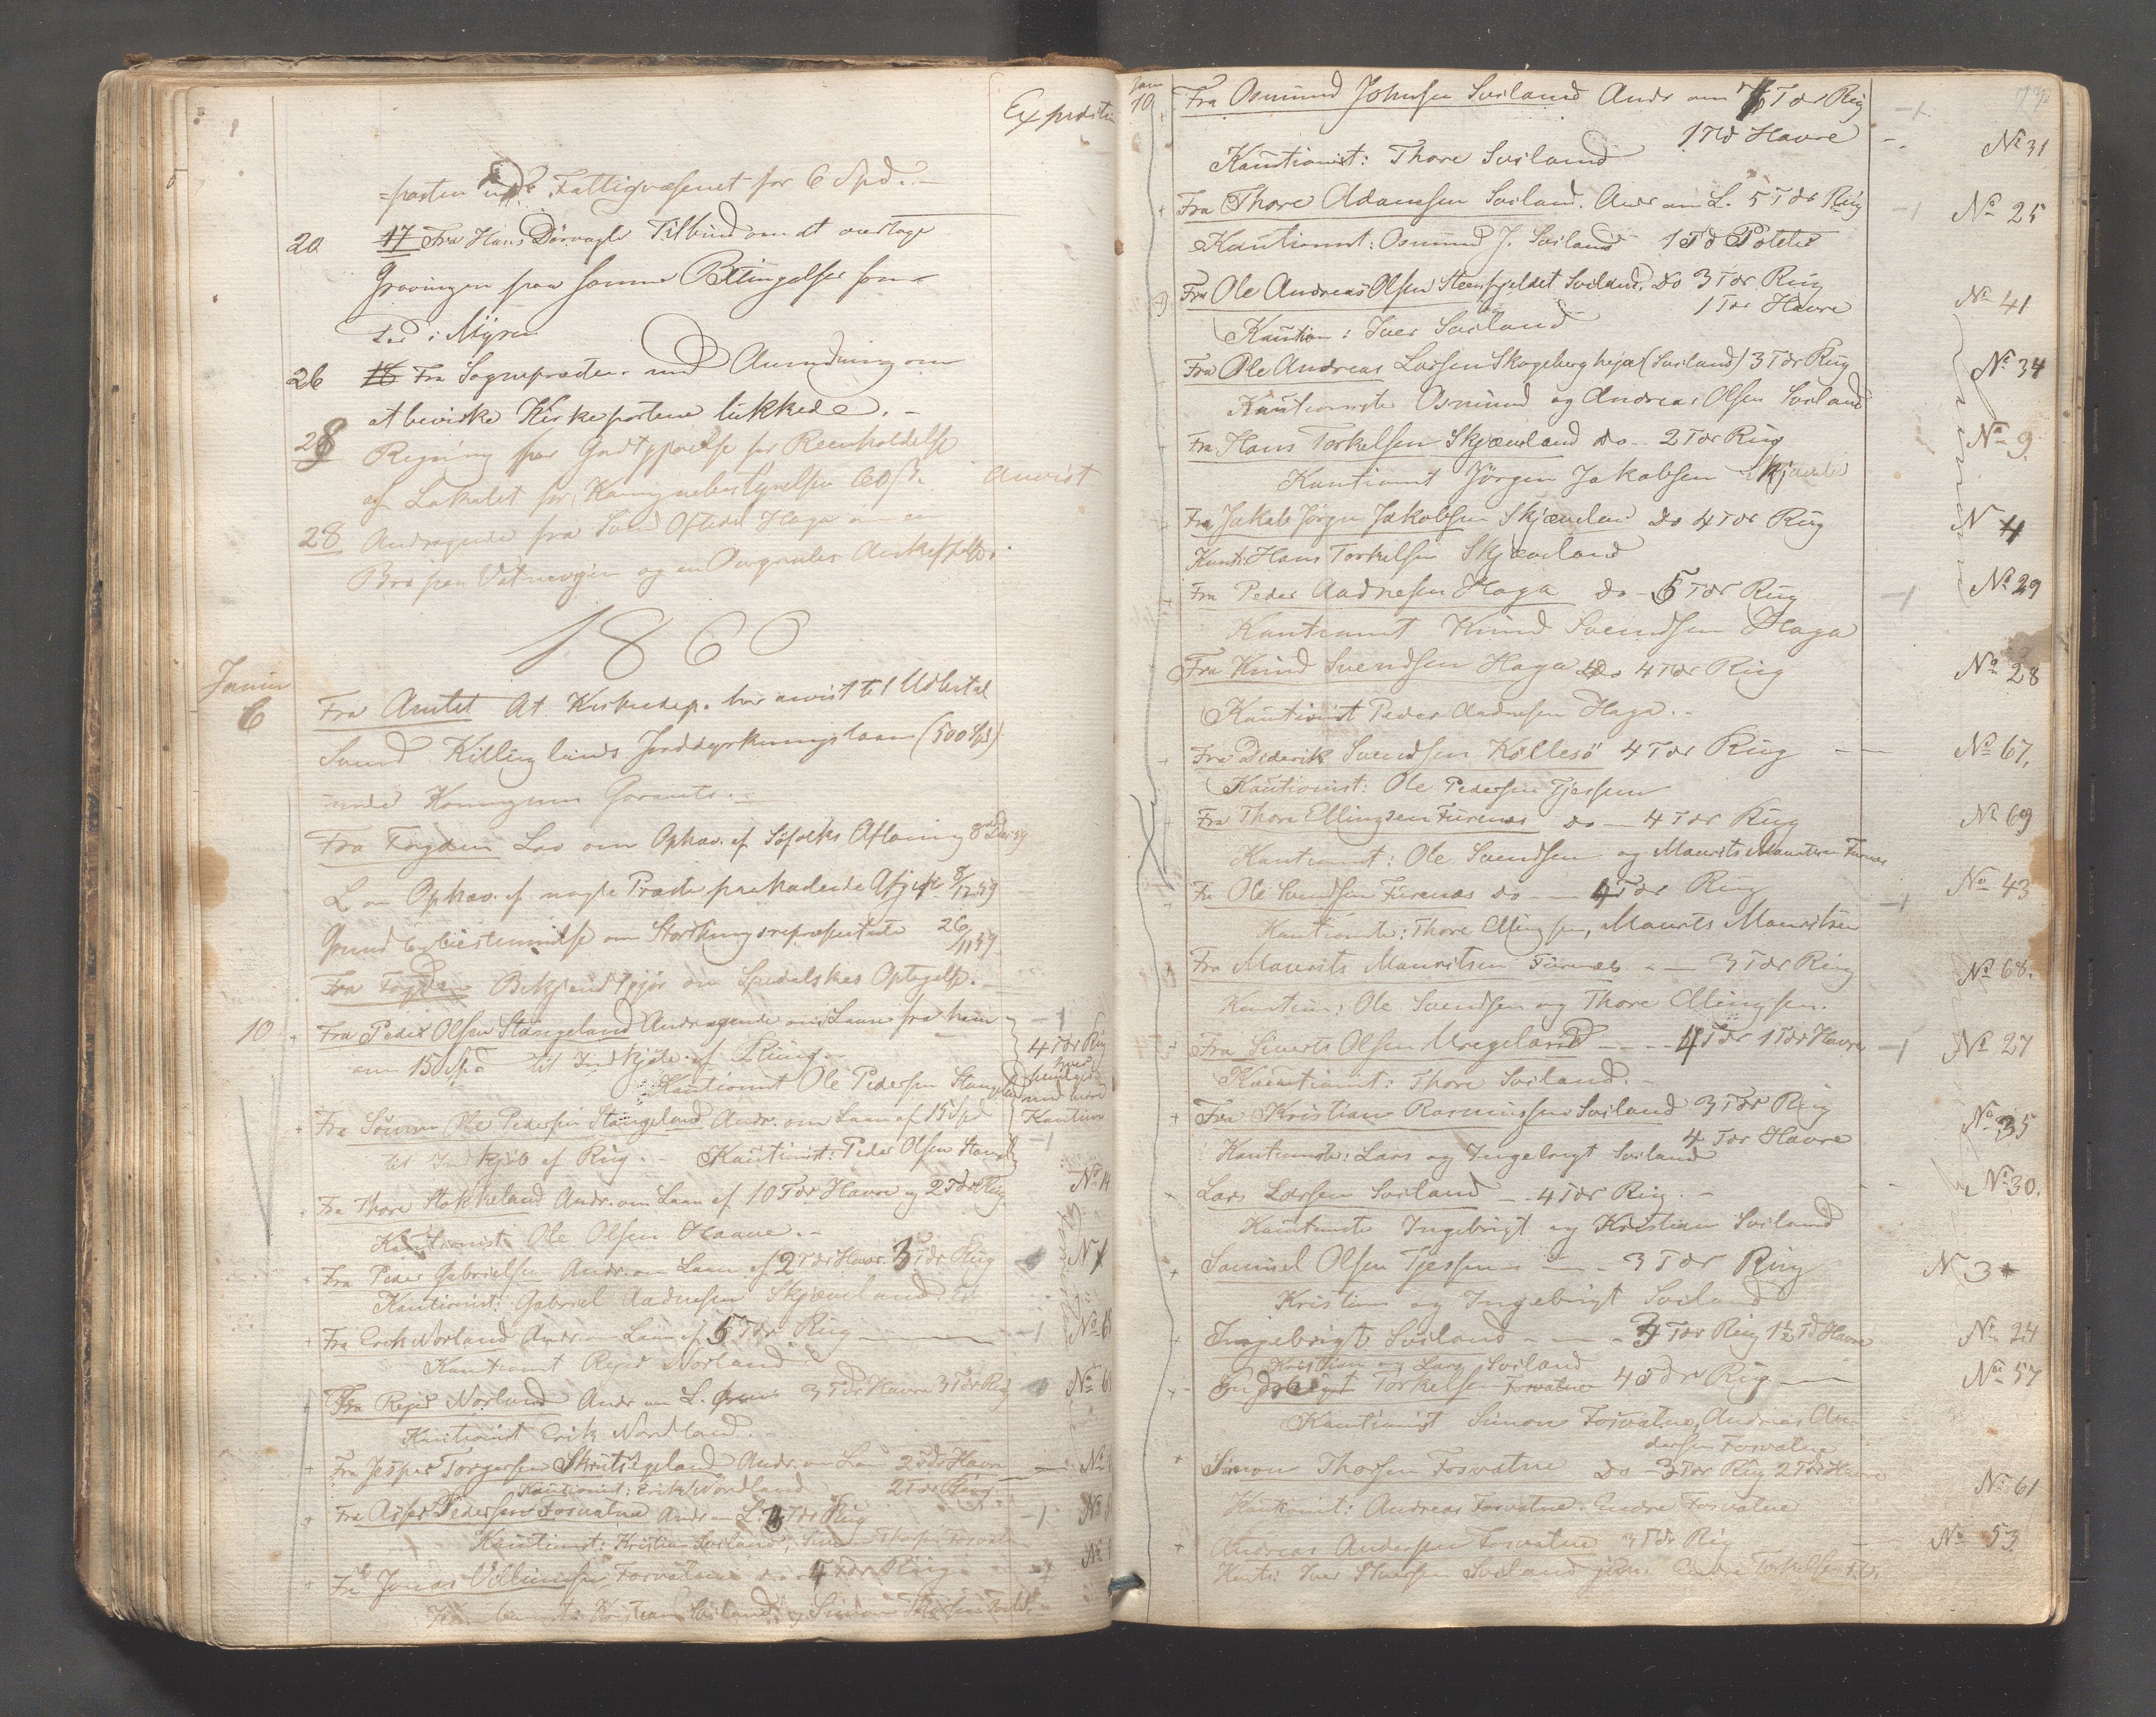 Expedition
=parten Fattigvæsenet for 6 Spd. -
20 17 Fra Hans Dørvagle Tilbud om at overtage
Gravingen paa samme Betingelser som
i Myra
26 18 Fra Sognepræsten med Anmodning om
at bevirke Kirkeportene lukkede. -
28 Regning for Godtgjørelse for Reenholdelse
af Lokalet for Kommunebestyrelsen 60 ß. anvist
28 Andragende fra Haga om en
Bro paa og en
1860
Januar
6 Fra Amtet At Kirkedep. har anvist til Udbetal
Svend Killinglands Jorddyrkningslaan (500 Spd)
under Kommunens Garanti. -
Fra Fogden Lov om Ophæv. af Søfolks Afløning 8 Dec 59
L om Ophæv. af nogle Præste paahvilende Afgift 8/12 59
Grundlovsbestemmelse om Storthingsrepræsentanter 26/11 59
Fra Fogden Bekjendtgjør om Spedalskes Optegelse. -
10 Fra Peder Olsen Stangeland Andragende om Laan fra ham
om 15 Spd til Indkjøb af Rug. -
Kautionist Ole Pedersen Stangeland
4 Tdr Rug
hver
Kaution
Fra Sønnen Ole Pedersen Stangeland Andr. om Laan af 15 Spd
til Indkjøb af Rug. - Kautionist: Peder Olsen Stangel
Fra Thore Stokkeland Andr. om Laan af 10 Tdr Havre og 2 Tdr Rug
Kautionist Ole Olsen Haave. -
Fra Peder Gabrielsen Andr. om Laan af 2 Tdr Havre 3 Tdr Rug
Kautionist: Gabriel Aadnesen Skjæveland
Fra Erik Norland Andr. om Laan af 5 Tdr Rug
Kautionist Rejer Norland
Fra Rejer Norland Andr om L. 3 Tdr Havre 3 Tdr Rug
Kautionist Erik Nordland. -
Fra Jesper Torgersen Skrudsegeland Andr. om La 2 Tdr Havre
Kautionist: Erik Nordland 2 Tdr Rug.
Fra Asser Pedersen Fosvatne Andr om L. 4 Tdr Rug
Kautionist: Kristian Soiland, Simon Thorsen Fosvatne
Fra Jonas Villumsen Fosvatne do 4 Tdr Rug
Kristian Soiland og Simon Thorsen
Jan
10 Fra Osmund Johnsen Soiland Andr om Tdr Rug
1 Td Havre
Kautionist: Thore Soiland No 31
Fra Thore Adamsen Soiland. Andr om L. 5 Tdr Rug No 25
Kautionist: Osmund J. Soiland 1 Td Poteter
Fra Ole Andreas Olsen Steensfjeldet Soiland. Do 3 Tdr Rug
1 Tdr Havre No 41
Kaution: Iver Soiland
Fra Ole Andreas Larsen Skogebergheja (Soiland) 3 Tdr Rug No 34
Kautionister Osmund og Andreas Olsen Soiland
Fra Hans Torkelsen Skjæveland Do - 2 Tdr Rug No 9.
Kautionist Jörgen Jakobsen Skjæveland
Fra Jakob Jörgen Jakobsen Skjæveland Do 4 Tdr Rug N 4
Kaut: Hans Torkelsen Skjæveland
Fra Peder Aadnesen Haga do - 5 Tdr Rug No 29
Kautionist Knud Svendsen Haga
Fra Knud Svendsen Haga Do 4 Tdr Rug No 28
Kautionist Peder Aadnesen Haga. -
Fra Diderik Svendsen Kollesö 4 Tdr Rug No 67.
Kautionist: Ole Pedersen Tjessem
Fra Thore Ellingsen Furenes do - 4 Tdr Rug No 69
Kautionist: Ole Svendsen og Maurits Mauritsen Furenes
Fr Ole Svendsen Furenes do - 4 Tdr Rug No 43
Kautionister: Thore Ellingsen, Maurits Mauritsen
Fra Maurits Mauritsen Furenes - 3 Tdr Rug No 68.
Kaution: Ole Svendsen og Thore Ellingsen.
Fra Siverts Olsen Vregeland - - 4 Tdr 1 Tdr Havre No 27
Kautionist: Thore Soiland. -
Fra Kristian Rasmussen Soiland 3 Tdr Rug
4 Tdr Havre No 35
Kautionister: Lars og Ingebrigt Soiland
Lars Larsen Soiland - 4 Tdr Rug. - No 30.
Kautionister Ingebrigt og Kristian Soiland
Samuel Olsen Tjessem - 3 Tdr Rug N 3
Kristian og Ingebrigt Soiland
Ingebrigt Soiland - - 3 Tdr Rug 1½ Td Havre No 24
Kristian og Lars Soiland
Torkelsen Fosvatne 4 Tdr Rug No 57
Kautionist Simon Fosvatne, Andreas An-
dersen Fosvatne
Simon Thorsen Fosvatne do - 3 Tdr Rug 2 Tdr Havre No 61
Kautionist: Andreas Fosvatne. Endre Fosvatne
Andreas Andersen Fosvatne 3 Tdr Rug No 53
Kaut: Iver Soiland Endre Torkelsen